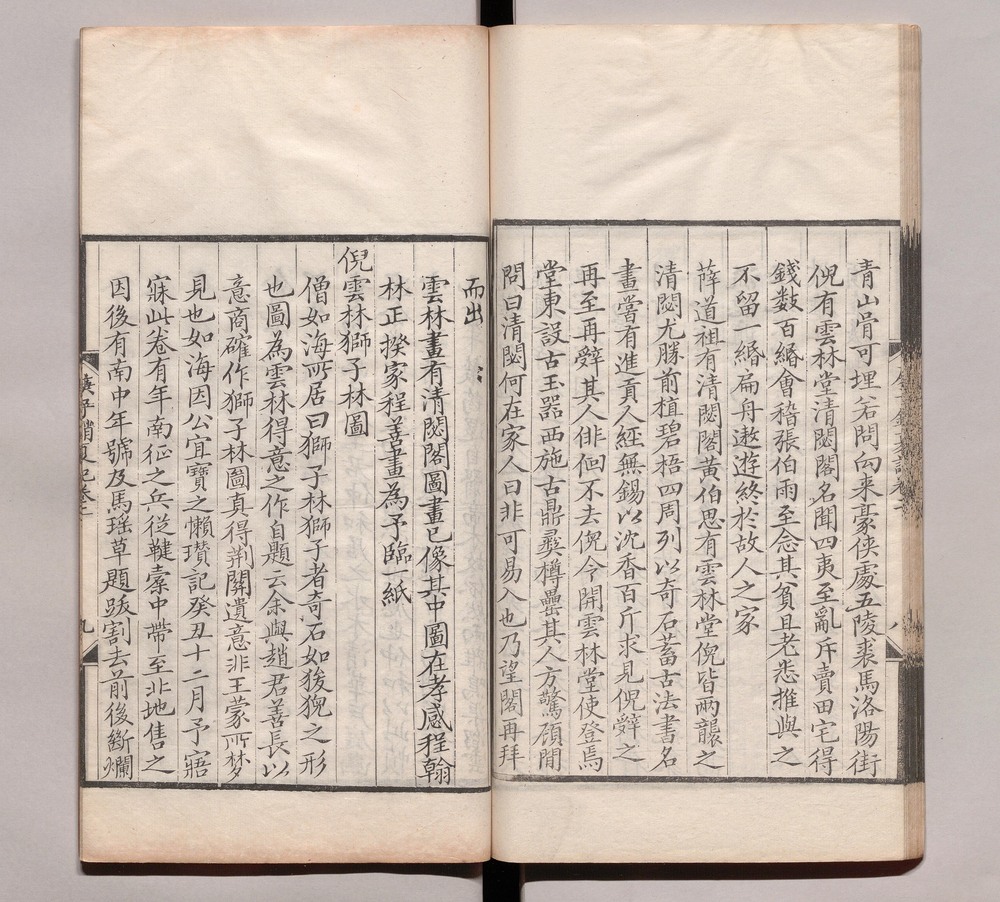 青山骨可埋若問向来豪侠處五陵裘馬洛陽街
倪有雲林堂清閟閣名聞四夷至亂斥賣田宅得
錢数百緡會稽張伯雨至念其貧且老悉推與之
不留一緡扁舟遨遊終於故人之家
薛道祖有清閟閣黄伯思有雲林堂倪皆兩襲之
清閟尤勝前植碧梧四周列以奇石蓄古法書名
畫嘗有進貢人經無錫以沈香百斤求見倪辤之
再至再辤其人俳佪不去倪令開雲林堂使登焉
堂東設古玉器西施古鼎彛樽罍其人方驚顧間
問曰清閟何在家人曰非可易入也乃望閣再拜
而出
雲林畫有清閟閣圖畫已像其中圖在孝感程翰
林正揆家程善畫為予臨一紙
倪雲林獅子林圖
僧如海所居曰獅子林獅子者奇石如狻猊之形
也圖為雲林得意之作自題云余與趙君善長以
意商確作獅子林圖真得荆關遺意非王蒙所梦
見也如海因公宜寶之懶瓉記癸丑十二月予寤
寐此卷有年南征之兵従鞬櫜中帶至北地售之
因後有南中年號及馬瑶草題䟦割去前後斷爛
庚子銷夏記卷二
九